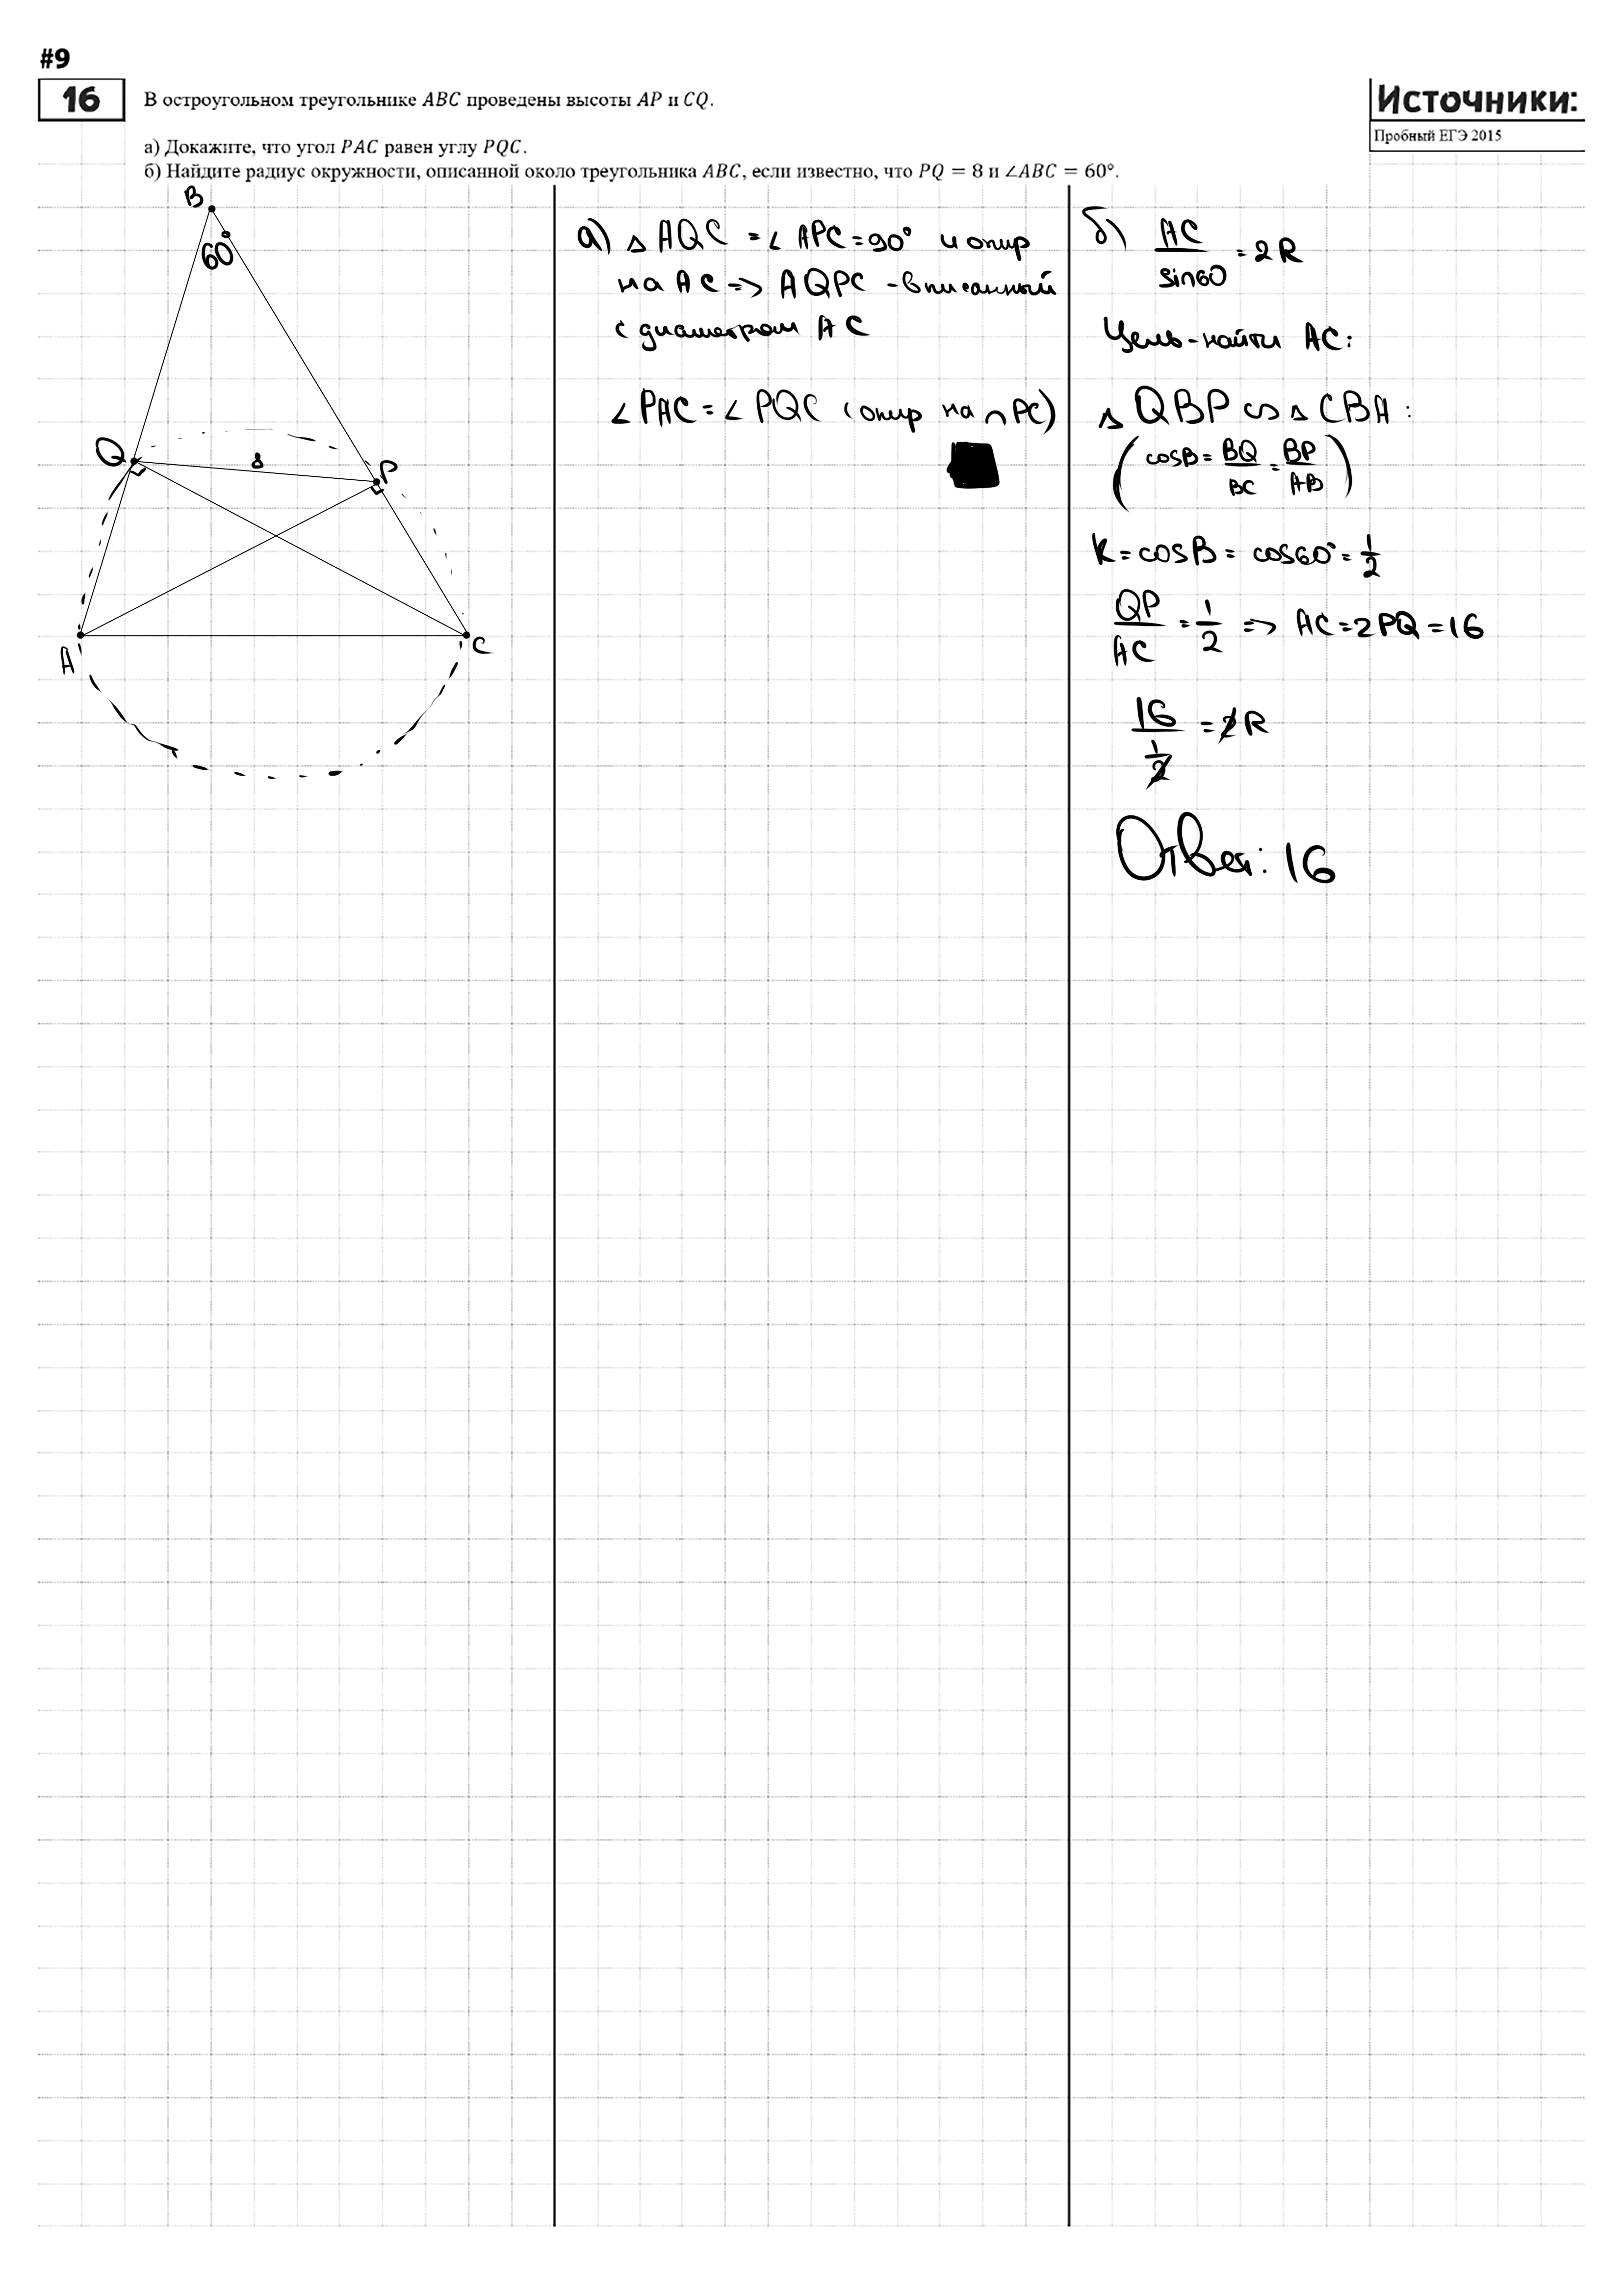 #9
16
В остроугольном треугольнике ABC проведены высоты AP и CQ.
Источники:
Пробный ЕГЭ 2015
а) Докажите, что угол PAC равен углу PQC.
б) Найдите радиус окружности, описанной около треугольника ABC, если известно, что PQ = 8 и ∠ABC = 60°.
B
60°
Q
8
P
A
C
а) △ AQC = ∠ APC = 90° и опир
на AC => AQPC - вписанный
с диаметром AC
∠ PAC = ∠ PQC (опир на ∩ PC)
б) AC/sin60 = 2R
Цель - найти AC:
△ QBP ∽ △ CBA :
(cosB = BQ/BC = BP/AB)
K = cosB = cos60° = 1/2
QP/AC = 1/2 => AC = 2PQ = 16
16/(1/2) = 2R
Ответ: 16